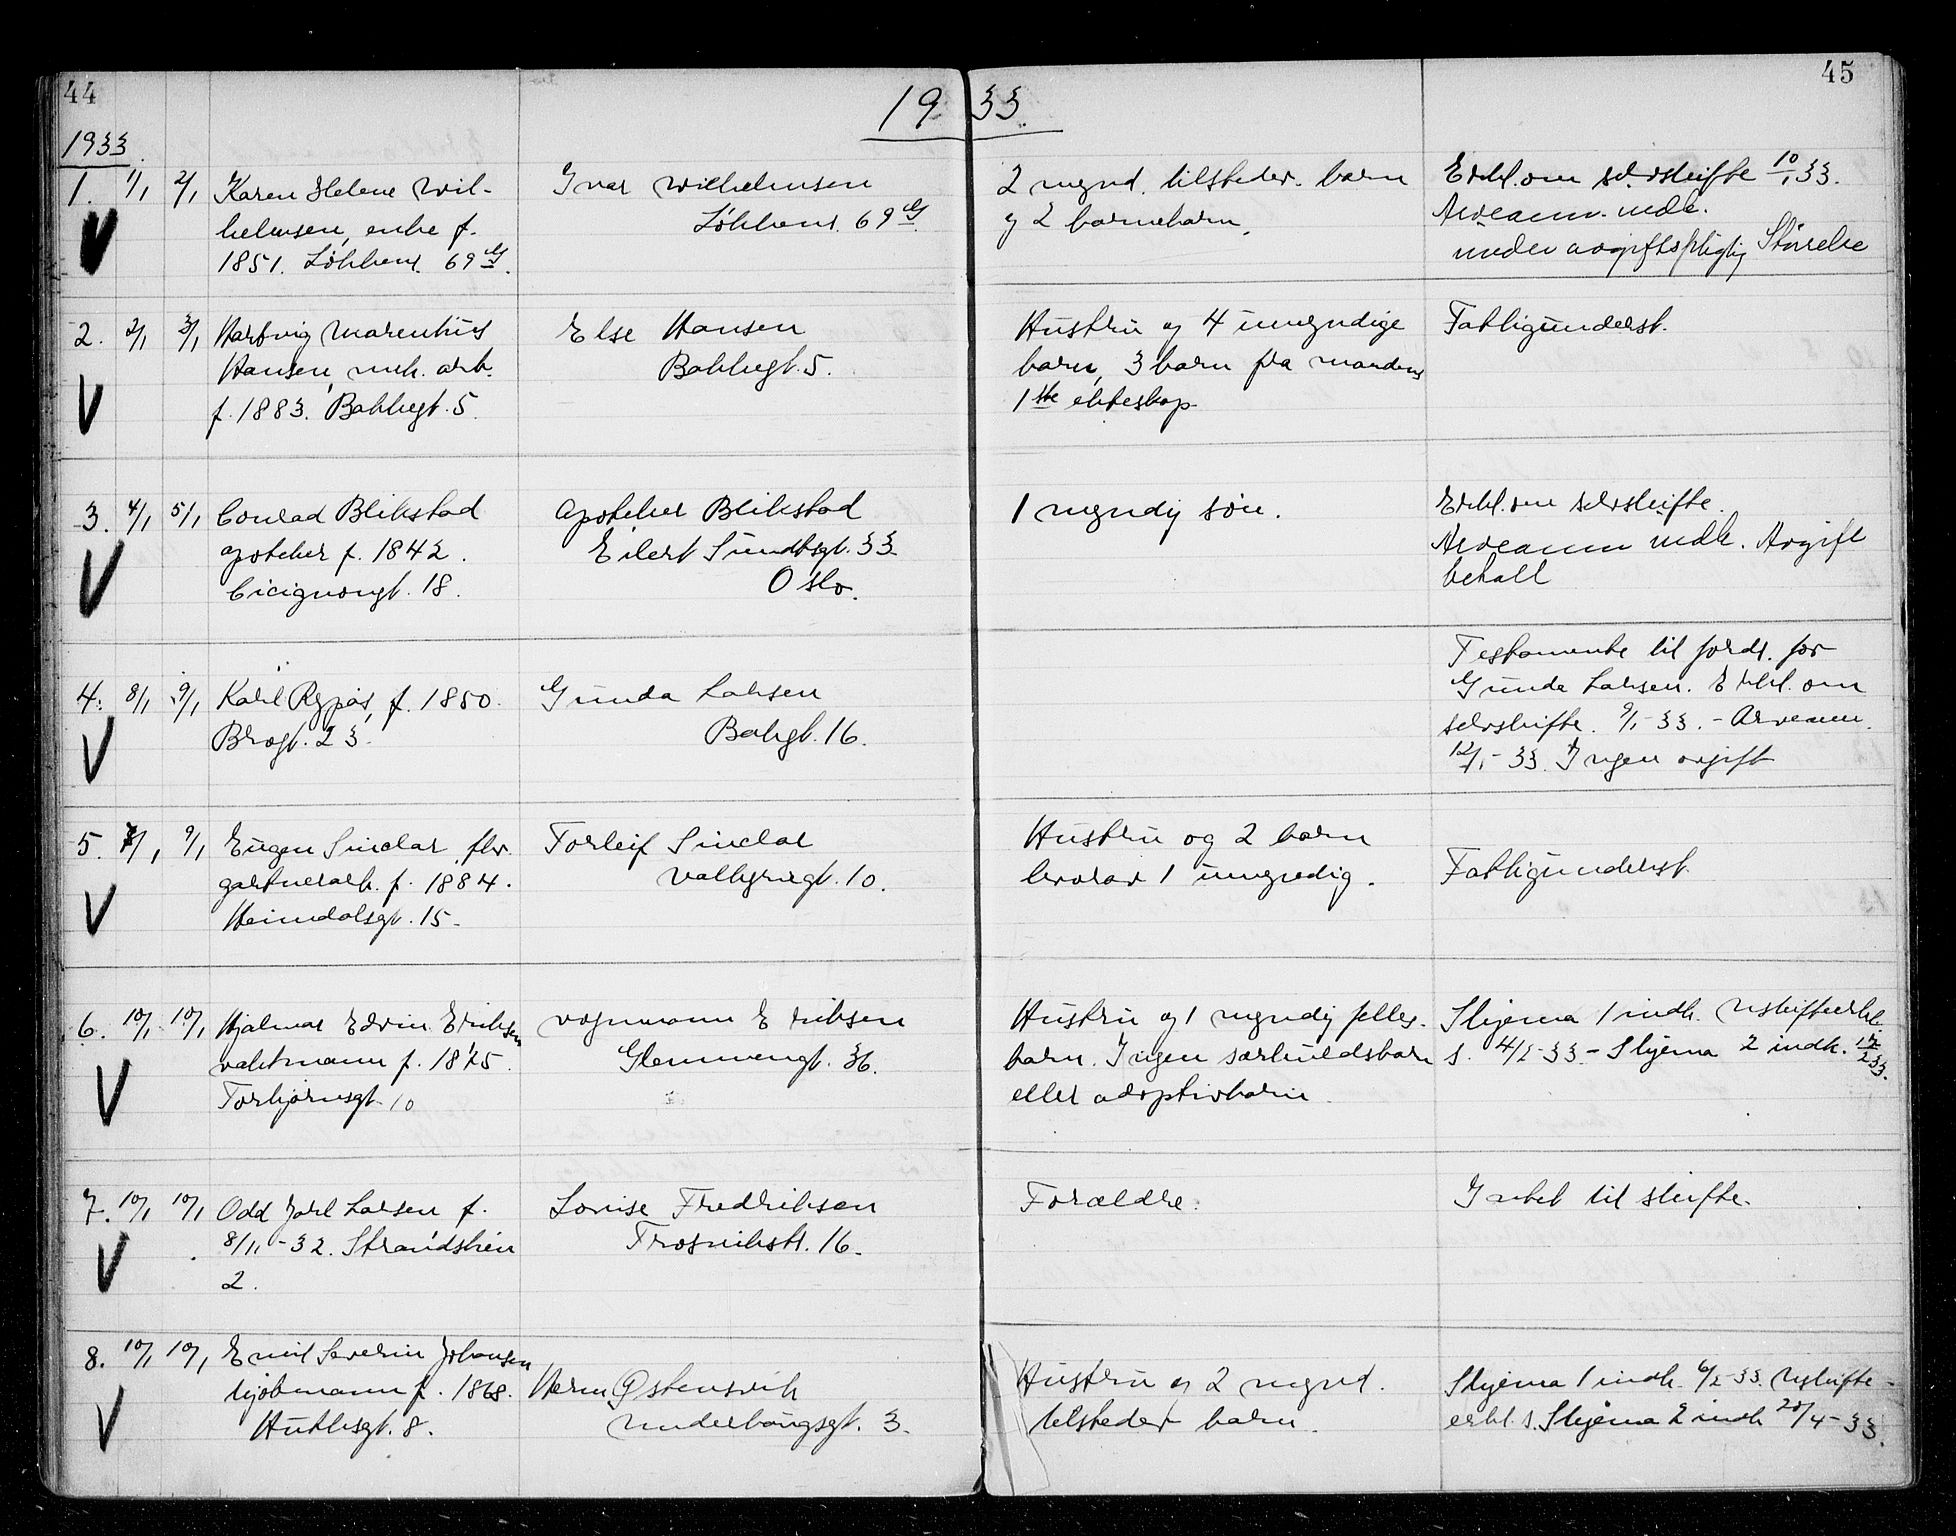 44
45
19 33
1933
1. 1/1 2/1 Karen Helene Wil-
helmsen, enke f.
1851. Løkkens 69 G.
Ivar Wilhelmsen
Løkkens 69 G.
2 mynd. tilsteder. barn
og 2 barnebarn.
Erkl. om selvskifte 10/1 33.
Arveanm. indk.
under avgiftspligtig Størrelse
2. 2/1 3/1 Hartvig Marentius
Hansen, murh. arb.
f. 1883. Bakkegt. 5.
Else Hansen
Bakkegt. 5.
Hustru og 4 umyndige
barn, 3 barn fra mandens
1ste ekteskap.
Fattigunderst.
3. 4/1 5/1 Conrad Blikstad
apoteker f. 1842.
Cicignongt. 18.
Apoteker Blikstad
Eilert Sundtsgt. 33
Oslo.
1 myndig søn.
Erkl. om selvskifte.
Arveanm indk. Avgift
betalt
4. 8/1 9/1 Karl Rypås, f. 1850.
Brogt. 23.
Gunda Larsen
Bakgt. 16.
Testamente til fordl. for
Gunda Larsen. Erkl. om
selvskifte. 9/1-33. - Arveanm.
12/1-33. Ingen avgift
5. 7/1, 9/1 Eugen Sinclar, fhv.
gartnerarb. f. 1884.
Heimdalsgt. 15.
Torleif Sinclar
Valkyriegt. 10.
Hustru og 2 barn
hvorav 1 umyndig.
Fattigunderst.
6. 10/1 10/1 Hjalmar Edvin Eriksen
vaktmann f. 1875.
Torbjørnsgt. 10
Vognmann Eriksen
Glemmengt. 36.
Hustru og 1 myndig felles-
barn. Ingen særkuldsbarn
eller adoptivbarn.
Skjema 1 indk. Uskifteerkl.
s. 4/2-33 - Skjema 2 indk. 17/2 33.
7. 10/1 10/1 Odd Jarl Larsen f.
8/11-32. Strandstien
2.
Lovise Fredriksen
Trosvikstr. 16.
Forældre.
Intet til skifte.
8. 10/1 10/1 Emil Severin Johansen
kjøbmann f. 1868.
Huthsgt. 8.
Herm Østensvik
Underhaugsgt. 3.
Hustru og 2 mynd.
tilsteder barn.
Skjema 1 indk. 6/2-33. Uskifte-
erkl. s. Skjema 2 indk 20/4-33.